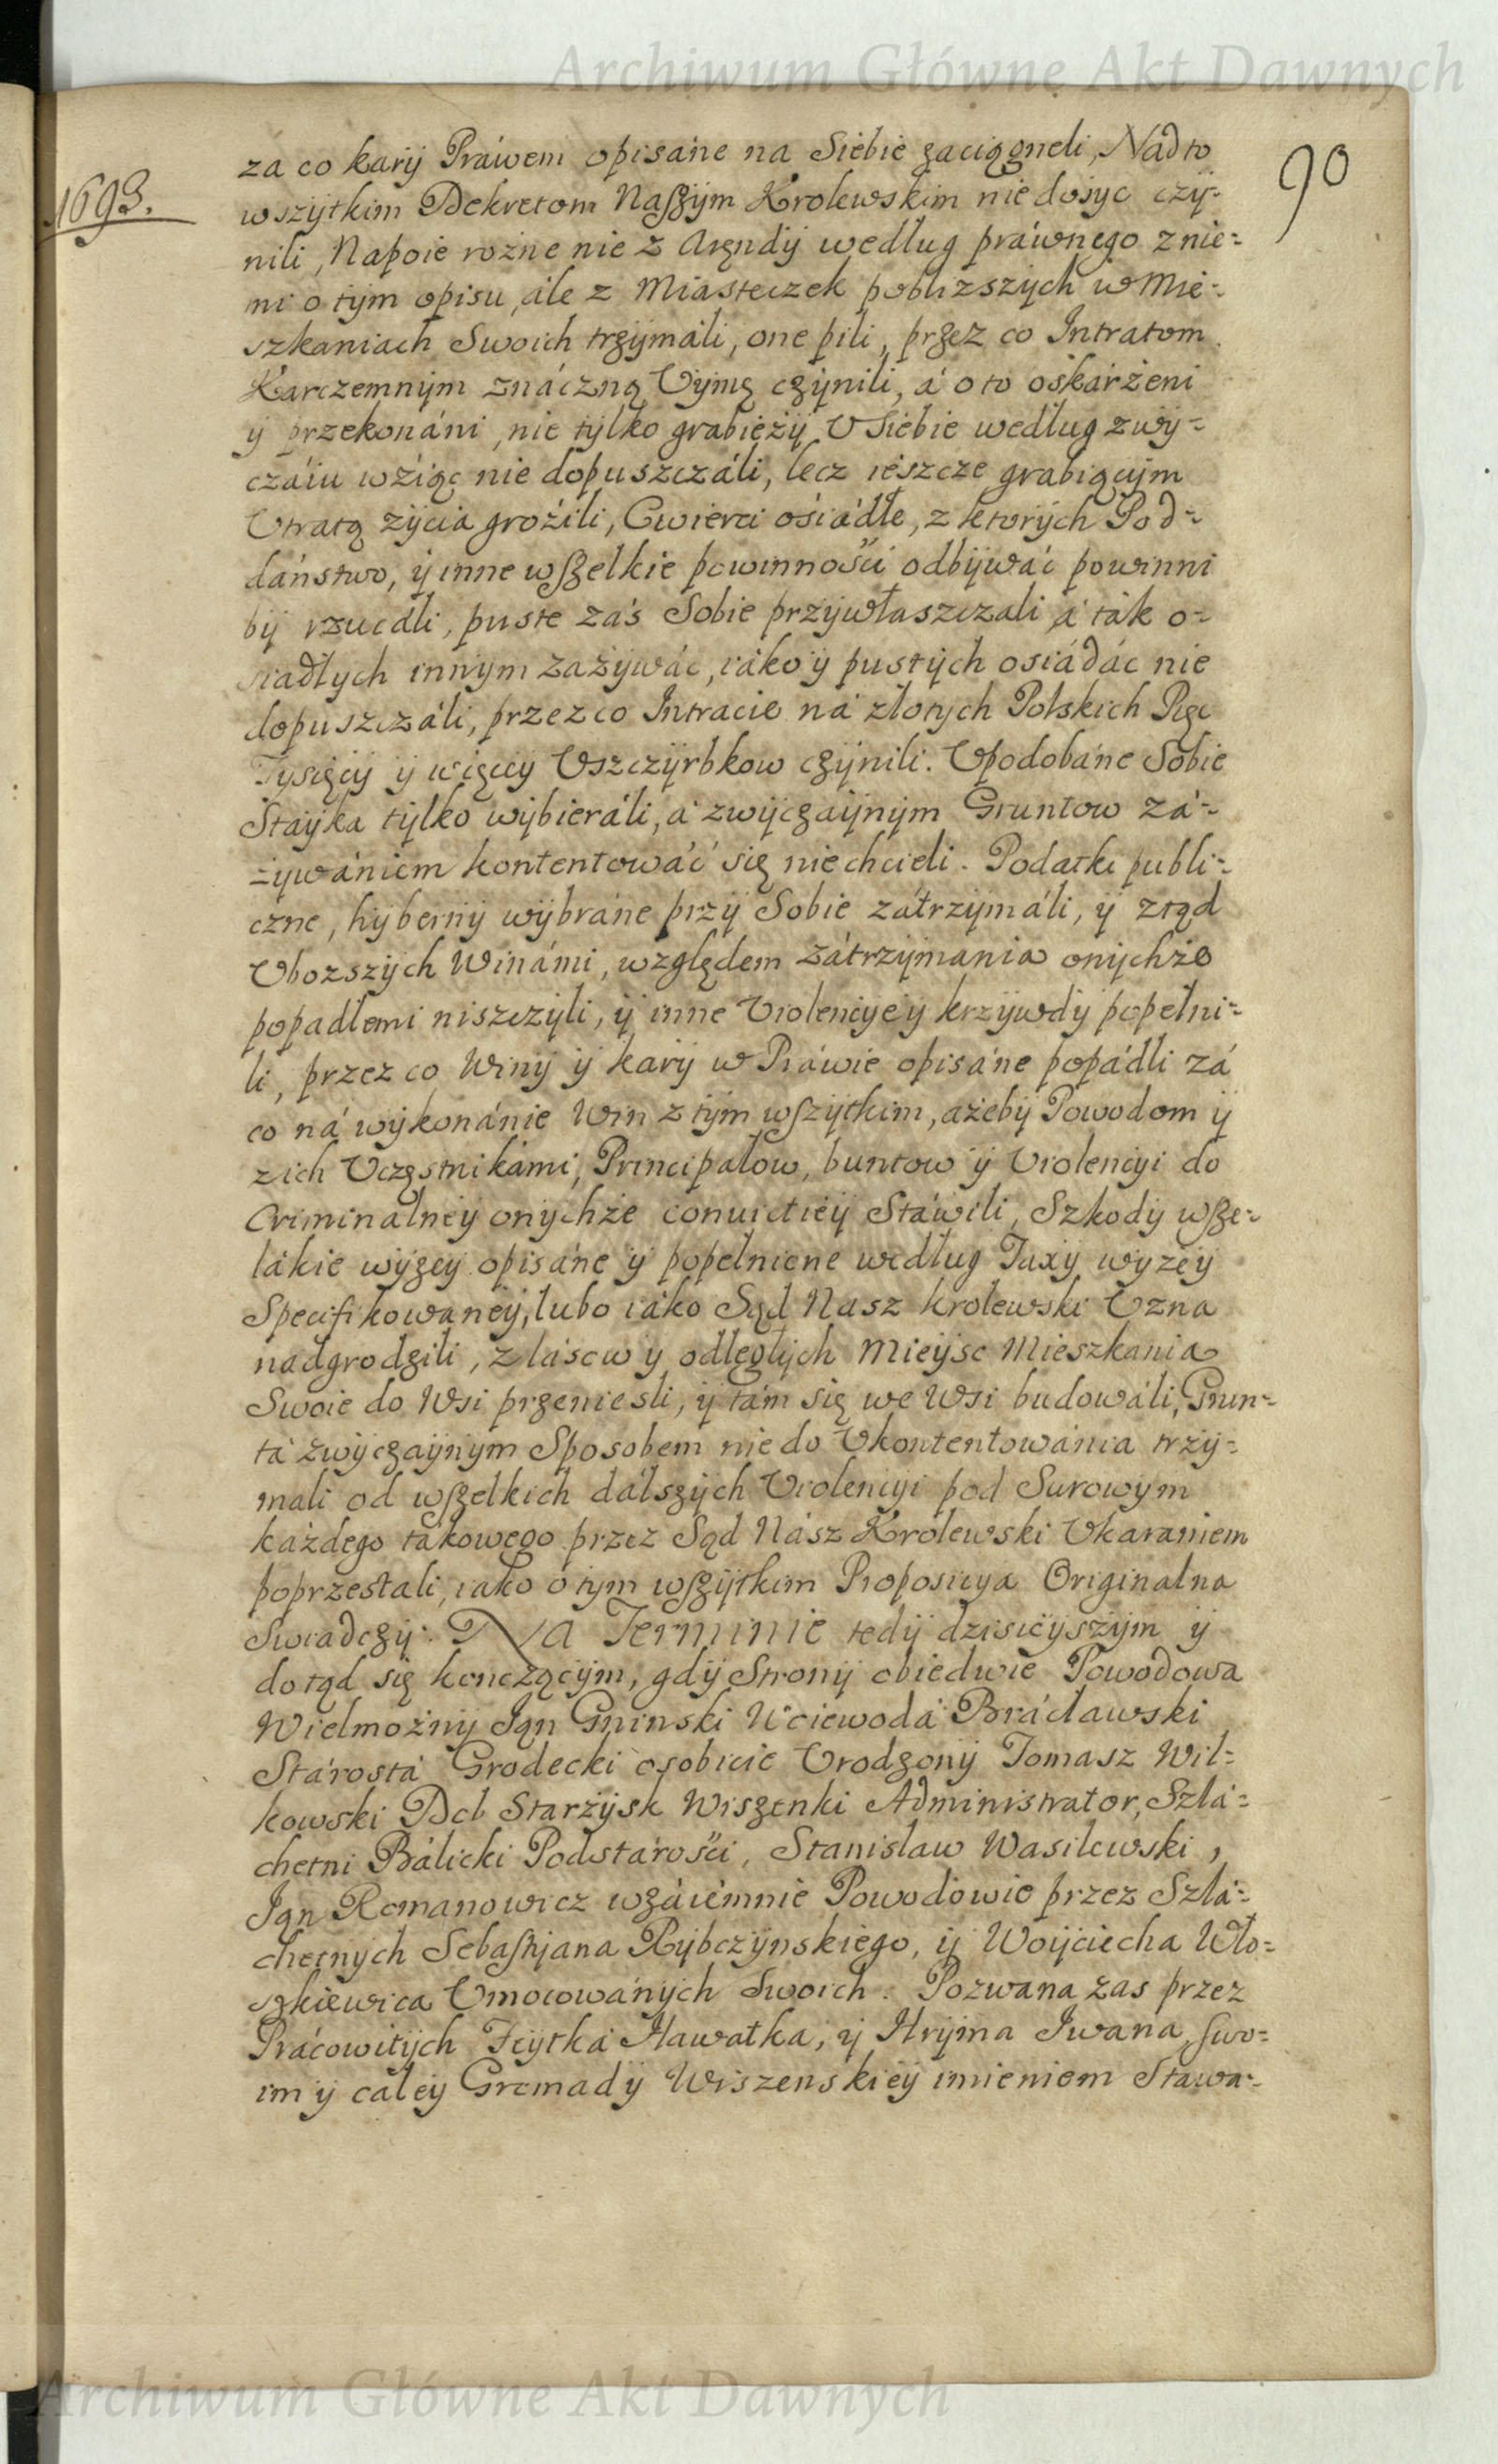 Archiwum Główne Akt Dawnych
90
1693.
za co kary Práwem opisáne na Siebie zaciągneli, Nadto
wszytkim Dekretom Naszym Krolewskim nie dosyc czy=
nili, Napoie rożne nie z Arędy według práwnego z nie=
mi o tym opisu, ále z Miasteczek pobliższych w Mie=
szkaniach Swoich trzymáli, one pili, przez co Intratom
Karczemnym znáczną Uymę czynili, á o to oskárżeni
y przekonáni, nie tylko grabieży U Siebie według zwy=
czáiu wźiąc nie dopuszczáli, lecz ieszcze grabiącym
Utratą życia groźili, Cwierci ośiádłe, z ktorych Pod=
dáństwo, y inne wszelkie powinnośći odbywáć powinni
by rzucáli, puste záś Sobie przywłaszczali á ták o=
siadłych innym zażywác, iáko y pustych osiádác nie
dopuszczáli, przez co Intracie ná złotych Polskich Pięc
Tysięcy y więcey Uszczyrbkow czynili. Upodobáne Sobie
Stáyka tylko wybieráli, á zwyczaynym Gruntow zá=
żywániem kontentowáć się niechcieli. Podatki publi=
czne, hyberny wybráne przy Sobie zátrzymáli, y ztąd
Uboższych Winámi, względem zátrzymania onychże
popadłemi niszczyli, y inne Violencye y krzywdy popełni=
li, przez co Winy y kary w Práwie opisáne popádli zá
co ná wykonánie Win z tym wszytkim, ażeby Powodom y
z ich Uczęstnikámi, Principałow, buntow y Violencyi do
Criminalney onychże convictiey Stáwili, Szkody wsze=
lákie wyżey opisáne y popełnione według Taxy wyżey
Specifikowáney, lubo iáko Sąd Nasz krolewski Uzna
nadgrodzili, z lásow y odległych Mieysc Mieszkania
Swoie do Wsi przeniesli, y tám się we Wsi budowáli, Grun=
tá zwyczaynym Sposobem nie do Ukontentowánia trzy=
mali od wszelkich dálszych Violencyi pod Surowym
każdego tákowego przez Sąd Nász Królewski Ukaraniem
poprzestali, iako o tym wszytkim Proposicya Originalna
Swiadczy. Na Terminie tedy dzisieyszym y
dotąd się kończącym, gdy Strony obiedwie Powodowa
Wielmożny Jan Gninski Woiewodá Brácławski
Stárostá Grodecki osobicie Urodzony Tomasz Wil=
kowski Dób Starżysk Wiszenki Administrator, Szlá=
chetni Bálicki Podstárośći, Stanislaw Wasilewski,
Jan Romanowicz wzáiémnie Powodowie przez Szlá=
chetnych Sebastyana Rybczynskiego, y Woyciecha Wło=
szkiewica Umocowánych Swoich. Pozwana zas przez
Prácowitych Feytká Hawatka, y Hryma Iwana, swo=
im y całey Gromady Wiszenskiey imieniem Stawa=
Archiwum Główne Akt Dawnych